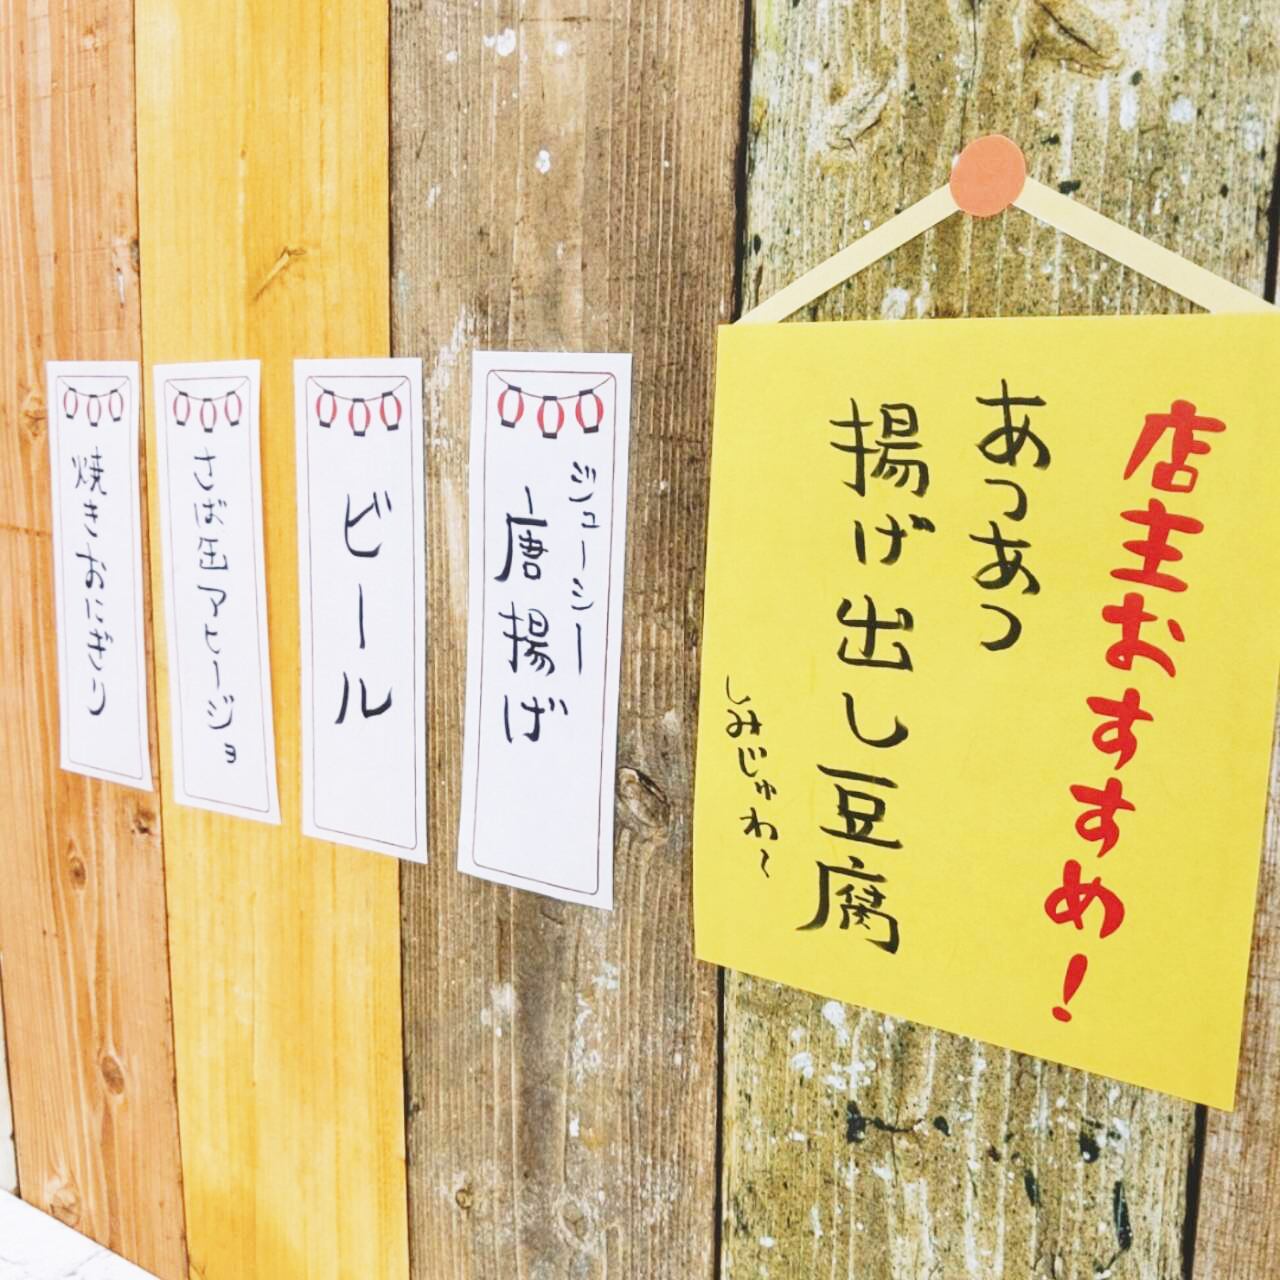 店主おすすめ!
あつあつ
揚げ出し豆腐
しみじゅわ~
ジューシー
唐揚げ
ビール
さば缶アヒージョ
焼きおにぎり